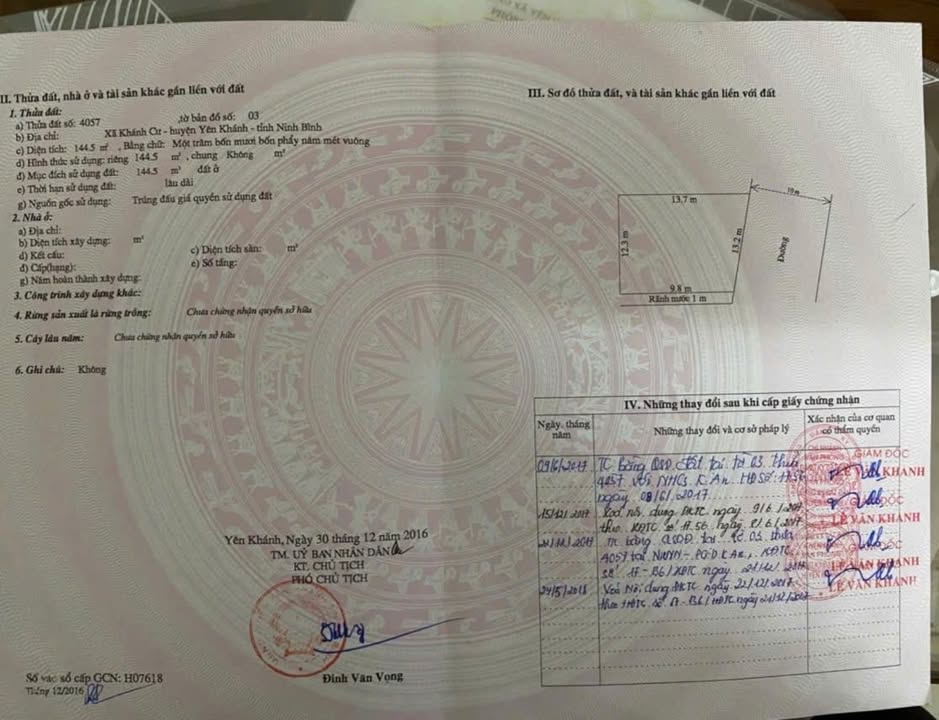 II. Thửa đất, nhà ở và tài sản khác gắn liền với đất
1. Thửa đất:
a) Thửa đất số: 4057 , tờ bản đồ số: 03
b) Địa chỉ: Xã Khánh Cư - huyện Yên Khánh - tỉnh Ninh Bình
c) Diện tích: 144.5 m², Bằng chữ: Một trăm bốn mươi bốn phẩy năm mét vuông
d) Hình thức sử dụng: riêng 144.5 m², chung Không m²
đ) Mục đích sử dụng đất: 144.5 m² đất ở
e) Thời hạn sử dụng đất: lâu dài
g) Nguồn gốc sử dụng: Trúng đấu giá quyền sử dụng đất
2. Nhà ở:
a) Địa chỉ:
b) Diện tích xây dựng: m² c) Diện tích sàn: m²
d) Kết cấu: e) Số tầng:
đ) Cấp(hạng):
g) Năm hoàn thành xây dựng:
3. Công trình xây dựng khác:
4. Rừng sản xuất là rừng trồng: Chưa chứng nhận quyền sở hữu
5. Cây lâu năm: Chưa chứng nhận quyền sở hữu
6. Ghi chú: Không
Yên Khánh, Ngày 30 tháng 12 năm 2016
TM. UỶ BAN NHÂN DÂN
KT. CHỦ TỊCH
PHÓ CHỦ TỊCH
Đinh Văn Vọng
Số vào sổ cấp GCN: H07618
Tháng 12/2016
III. Sơ đồ thửa đất, và tài sản khác gắn liền với đất
13.7 m
10 m
12.3 m
13.2 m
Đường
9.8 m
Rãnh nước 1 m
IV. Những thay đổi sau khi cấp giấy chứng nhận
Ngày, tháng năm
Những thay đổi và cơ sở pháp lý
Xác nhận của cơ quan có thẩm quyền
09/6/2017 TC bằng QSD đất tại tờ 03 thửa
4057 với NHCS K.An HĐ số
ngày 08/6/2017
15/12/2017 Xoá nội dung ĐKTC ngày 9/6/2017
theo ngày
TC bằng QSDĐ tại tờ 03 thửa
4057 tại
số ngày 21/12/2017
24/5/2018 Xoá Nội dung ĐKTC ngày 22/12/2017
theo HĐTC số ngày 21/12/2017
GIÁM ĐỐC
LÊ VĂN KHÁNH
LÊ VĂN KHÁNH
LÊ VĂN KHÁNH
LÊ VĂN KHÁNH